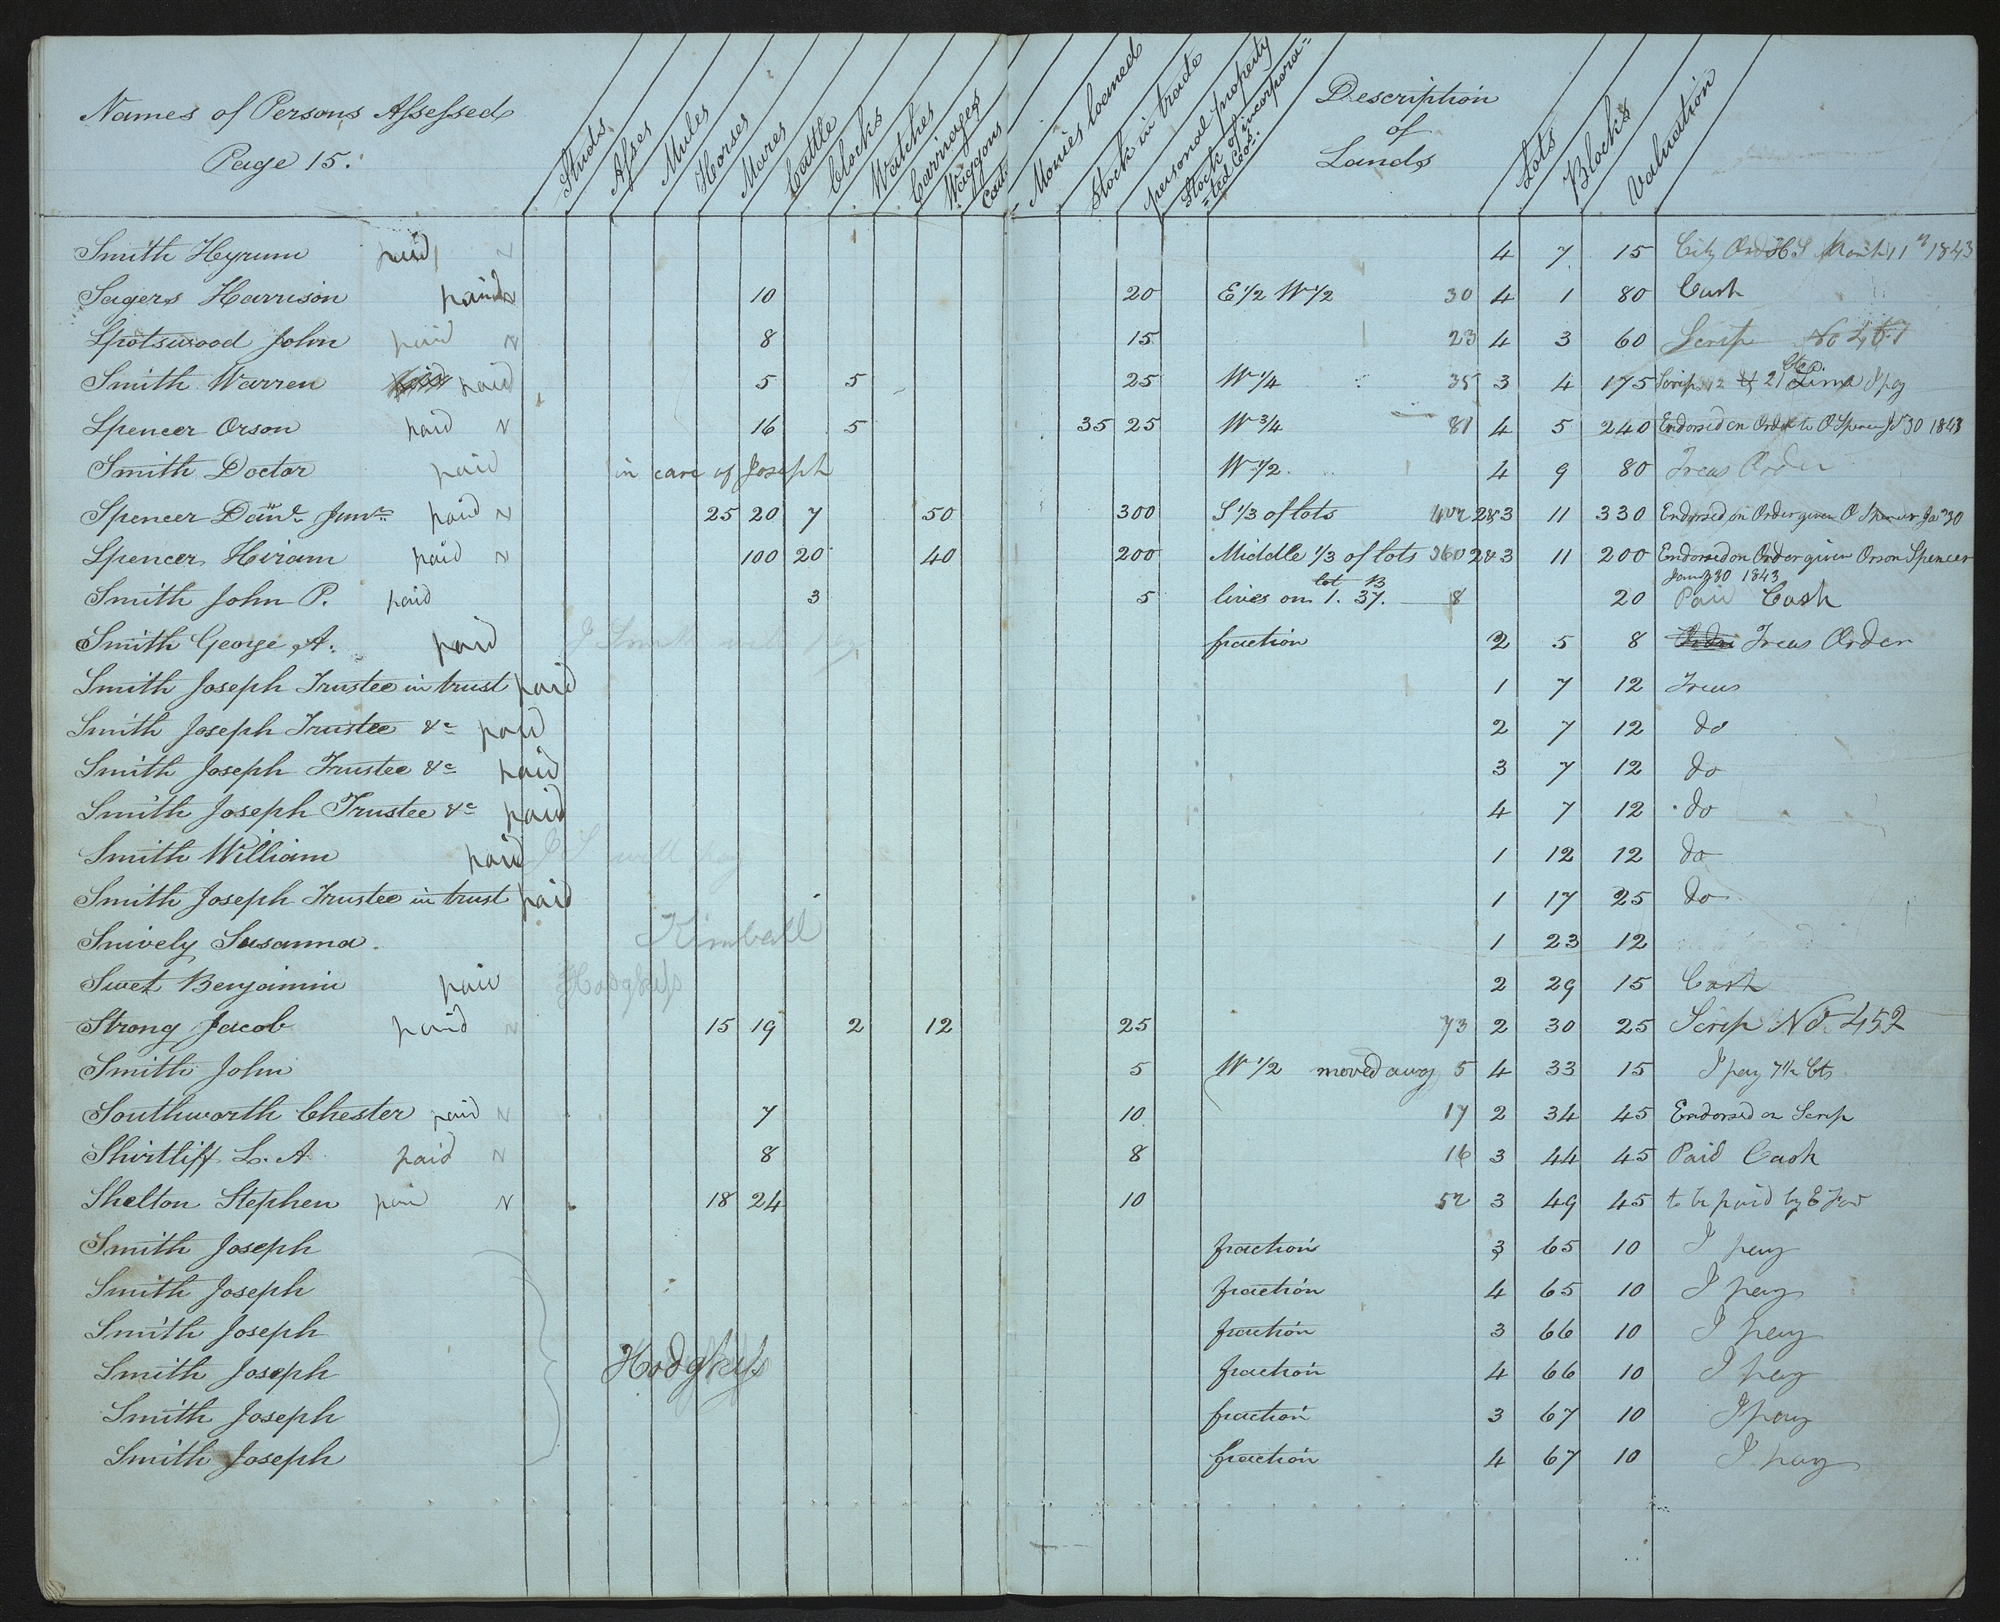 Names of Persons Assessed
Page 15.
Studs Asses Mules Horses Mares Cattle Clocks Watches Carriages Waggons Cart Monies loaned Stock in trade personal property Stock of incorpora=ted Cos. Description of Lands Lots Blocks Valuation
Smith Hyrum paid N 4 7 15 City Ord H.S March 11th 1843
Sagers Harrison paid N 10 20 E 1/2 W 1/2 30 4 1 80 Cash
Spotswood John paid N 8 15 23 4 3 60 Scrip No
Smith Warren paid 5 5 25 W 1/4 35 3 4 175 Scrip 12 & 21 Lima I pay
Spencer Orson paid N 16 5 35 25 W 3/4 81 4 5 240 Endorsed on Order to O Spencer 30 1843
Smith Doctor paid in care of Joseph W 1/2. 4 9 80 Treas Order
Spencer Danl. Junr. paid N 25 20 7 50 300 S 1/3 of lots 402 2&3 11 330 Endorsed on Order given O Spencer Jan 30
Spencer Hiram paid N 100 20 40 200 Middle 1/3 of lots 360 2&3 11 200 Endorsed on Order given Orson Spencer
Jany 30 1843
Smith John P. paid 3 5 lives on lot 1. B 37. 8 20 Paid Cash
Smith George A. paid J Smith will pay fraction 2 5 8 Treas Order
Smith Joseph Trustee in trust paid 1 7 12 Treas
Smith Joseph Trustee &c paid 2 7 12 do
Smith Joseph Trustee &c paid 3 7 12 do
Smith Joseph Trustee &c paid 4 7 12 do
Smith William paid J S will pay 1 12 12 do
Smith Joseph Trustee in trust paid 1 17 25 do
Snively Susanna. Kimball 1 23 12
Swet Benjamin paid Hodgkiss 2 29 15 Cash
Strong Jacob paid N 15 19 2 12 25 73 2 30 25 Scrip No. 452
Smith John 5 W 1/2 moved away 5 4 33 15 I pay 7 1/2 Cts
Southworth Chester paid N 7 10 17 2 34 45 Endorsed on Scrip
Shirtliff L. A paid N 8 8 16 3 44 45 Paid Cash
Shelton Stephen paid N 18 24 10 52 3 49 45 to be paid by E
Smith Joseph fraction 3 65 10 I pay
Smith Joseph fraction 4 65 10 I pay
Smith Joseph fraction 3 66 10 I pay
Smith Joseph Hodgkiss fraction 4 66 10 I pay
Smith Joseph fraction 3 67 10 I pay
Smith Joseph fraction 4 67 10 I pay